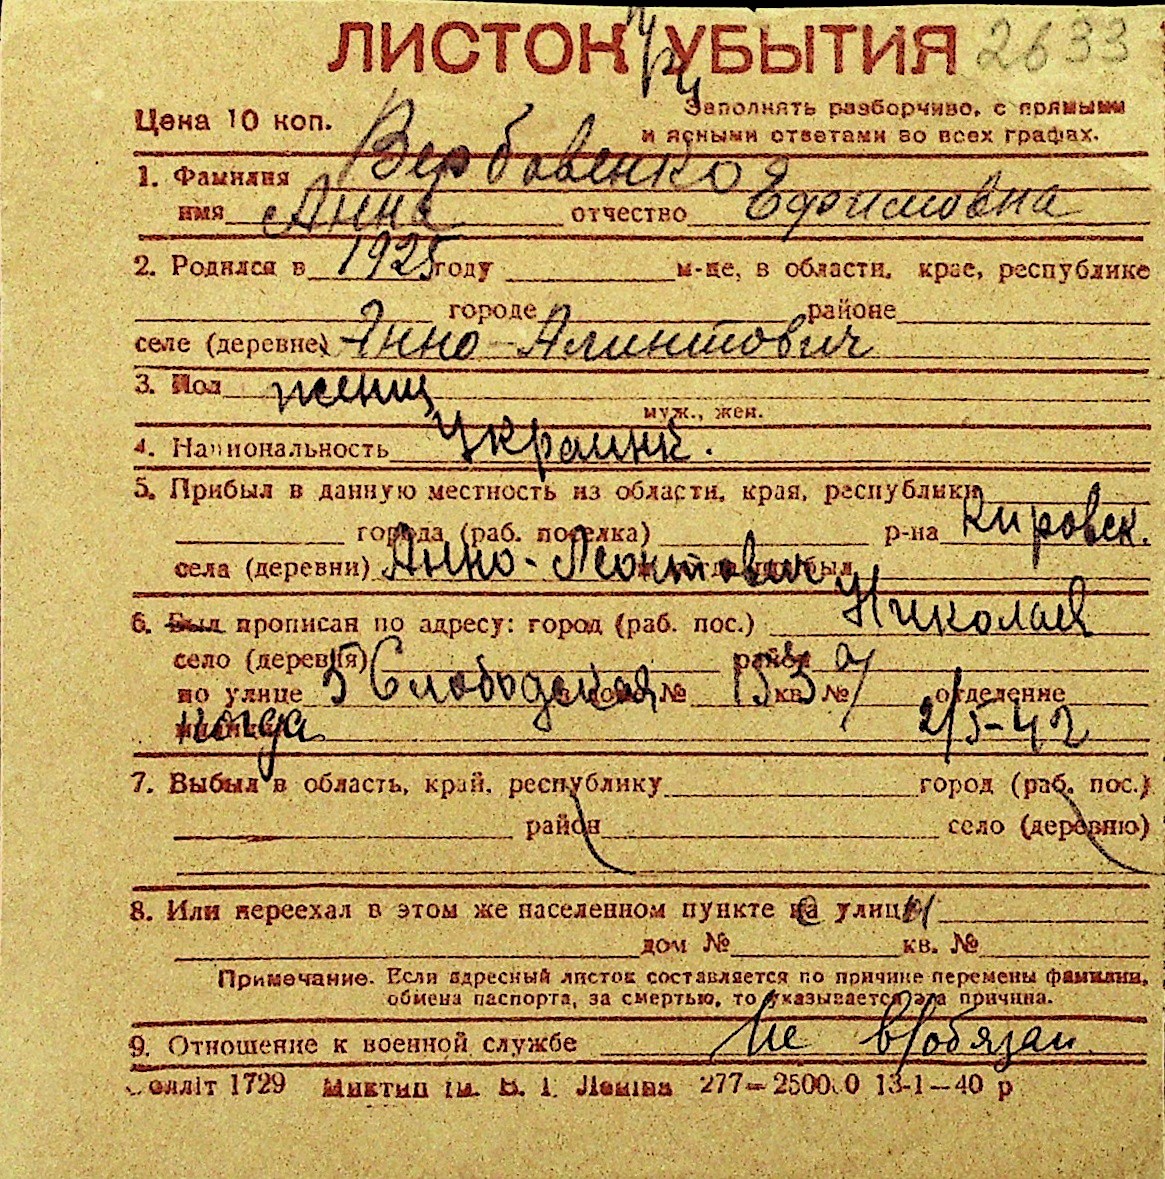 ЛИСТОК УБЫТИЯ 2633
Цена 10 коп.
Заполнять разборчиво, с прямыми
и ясными ответами во всех графах.
1. Фамилия Вербовенко
имя Анна отчество Ефимовна
2. Родился в 1925 году м-це, в области, крае, республике
городе районе
селе (деревне) Анно-
3. Пол женщ
муж., жен.
4. Национальность украинк.
5. Прибыл в данную местность из области, края, республики
города (раб. поселка) р-на Кировск.
села (деревни) Анно-Леонтович
6. Был прописан по адресу: город (раб. пос.) Николаев
село (деревня) район
по улице 5 Слободская дом № 153 кв. №
когда 2/5-42
7. Выбыл в область, край, республику город (раб. пос.)
район село (деревню)
8. Или переехал в этом же населенном пункте на улицу
дом № кв. №
Примечание. Если адресный листок составляется по причине перемены фамилии,
обмена паспорта, за смертью, то указывается эта причина.
9. Отношение к военной службе Не в/обязан
1729 Миктип ім. В. І. Леніна 277— 13-1—40 р